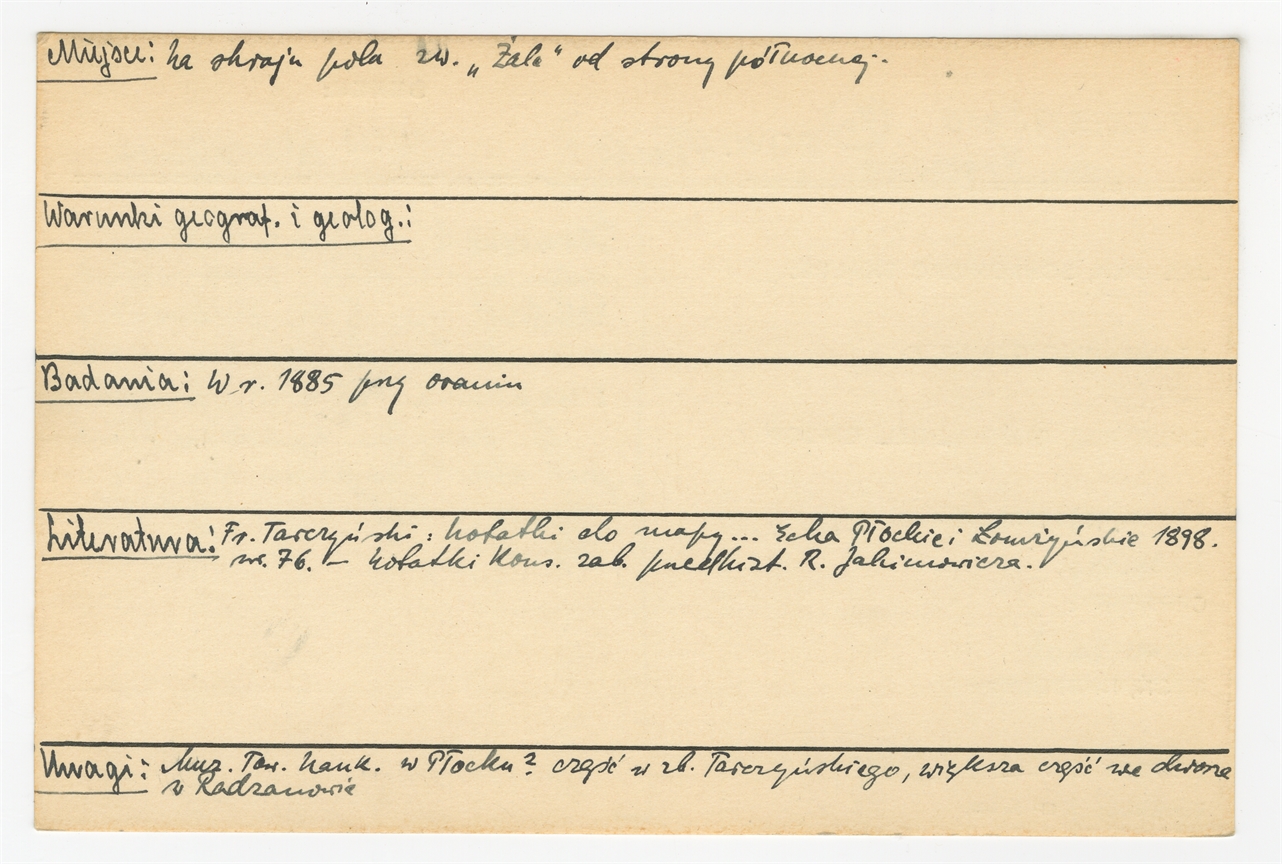 Miejsce: Na skraju pola zw. „Żale" od strony północnej.
Warunki geograf. i geolog.:
Badania: W r. 1885 przy oraniu
Literatura: Fr. Tarczyński: Notatki do mapy... Echa Płockie i Łomżyńskie 1898.
nr. 76. – Notatki Kons. zab. przedhist. R. Jakimowicza.
Uwagi: Muz. Tow. Nauk. w Płocku? część w zb. Tarczyńskiego, większa część we dworze
w Radzanowie